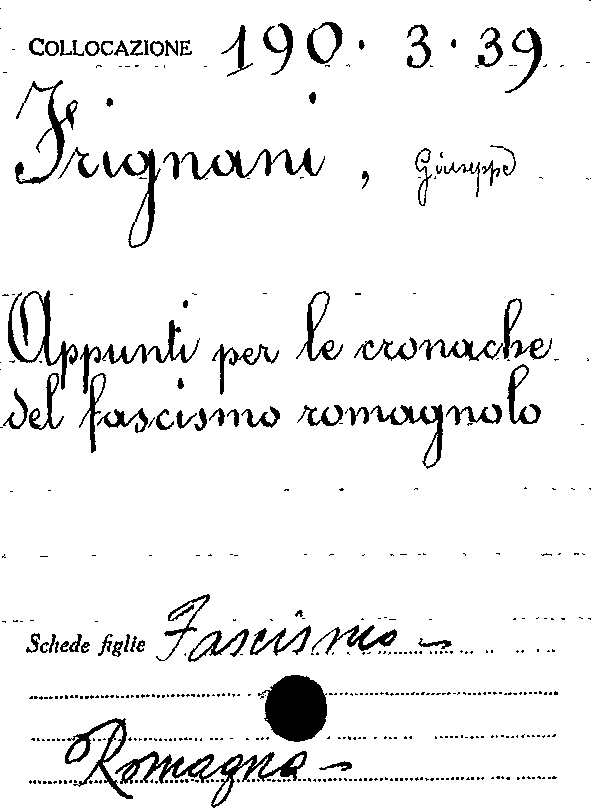 COLLOCAZIONE 190. 3. 39
Frignani, Giuseppe
Appunti per le cronache
del fascismo romagnolo
Schede figlie Fascismo -
Romagna -